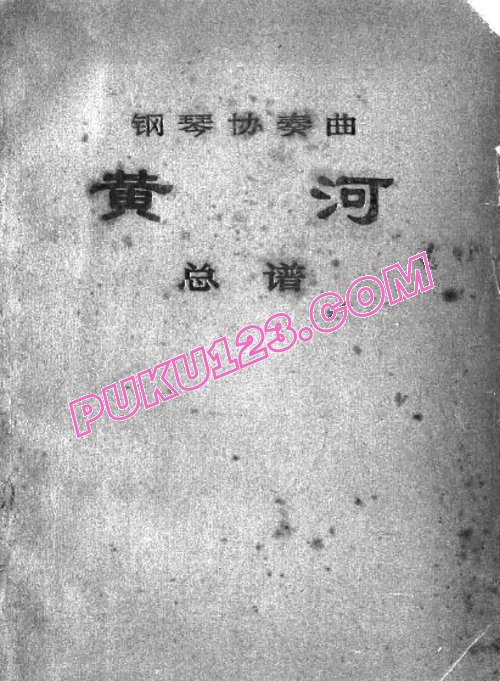 钢琴协奏曲
黄河
总谱
PUKU123.COM